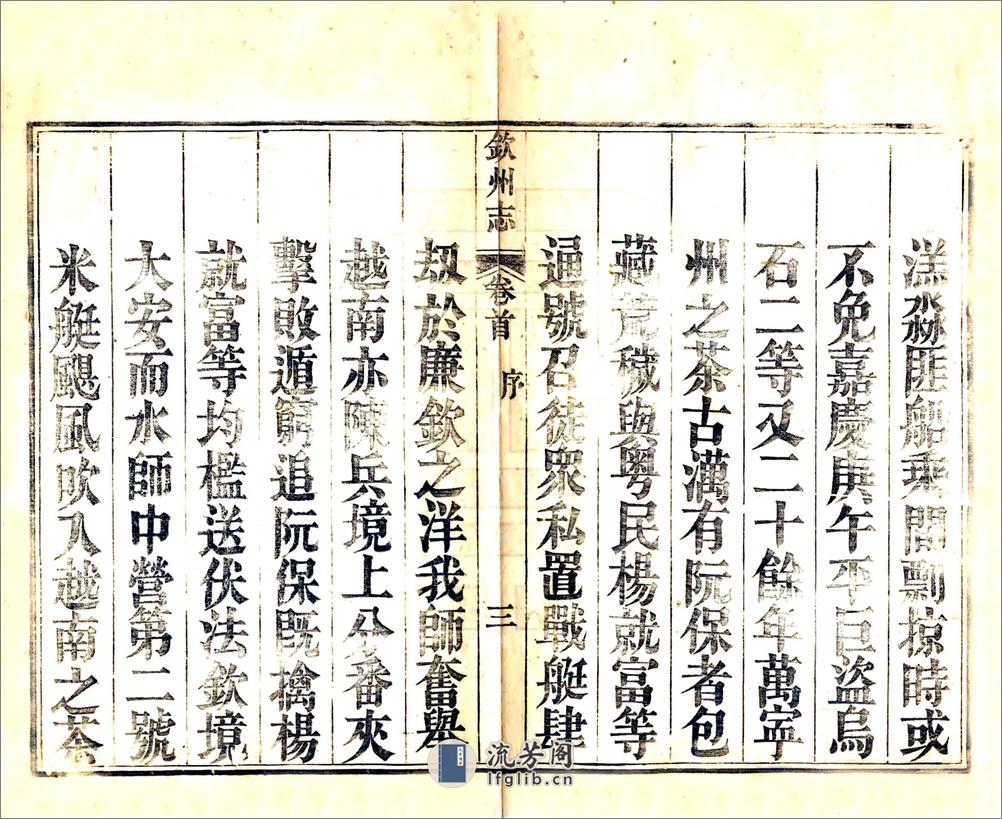 濍淼匪船乘間剽掠時或
不免嘉慶庚午平巨盜烏
石二等又二十餘年萬寧
州之茶古澫有阮保者包
藏荒穢與粵民楊就富等
通號召徒眾私置戰艇肆
欽州志 卷首 序 三
刼於廉欽之洋我師奮舉
越南亦陳兵境上分番夾
擊敗遁窮追阮保既擒楊
就富等均檻送伏法欽境
大安而水師中營第二號
米艇颶風吹入越南之茶
流芳阁
lfglib.cn